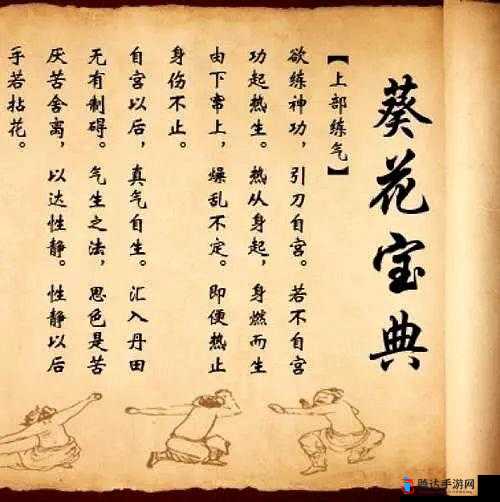 葵花宝典
【上部练气】
欲练神功，引刀自宫。若不自宫
功起热生。热从身起，身燃而生
由下窜上，燥乱不定。即便热止
身伤不止。
自宫以后，真气自生。汇入丹田
无有制碍。气生之法，思色是苦
厌苦舍离，以达性静。性静以后
手若拈花。
腾达手游网